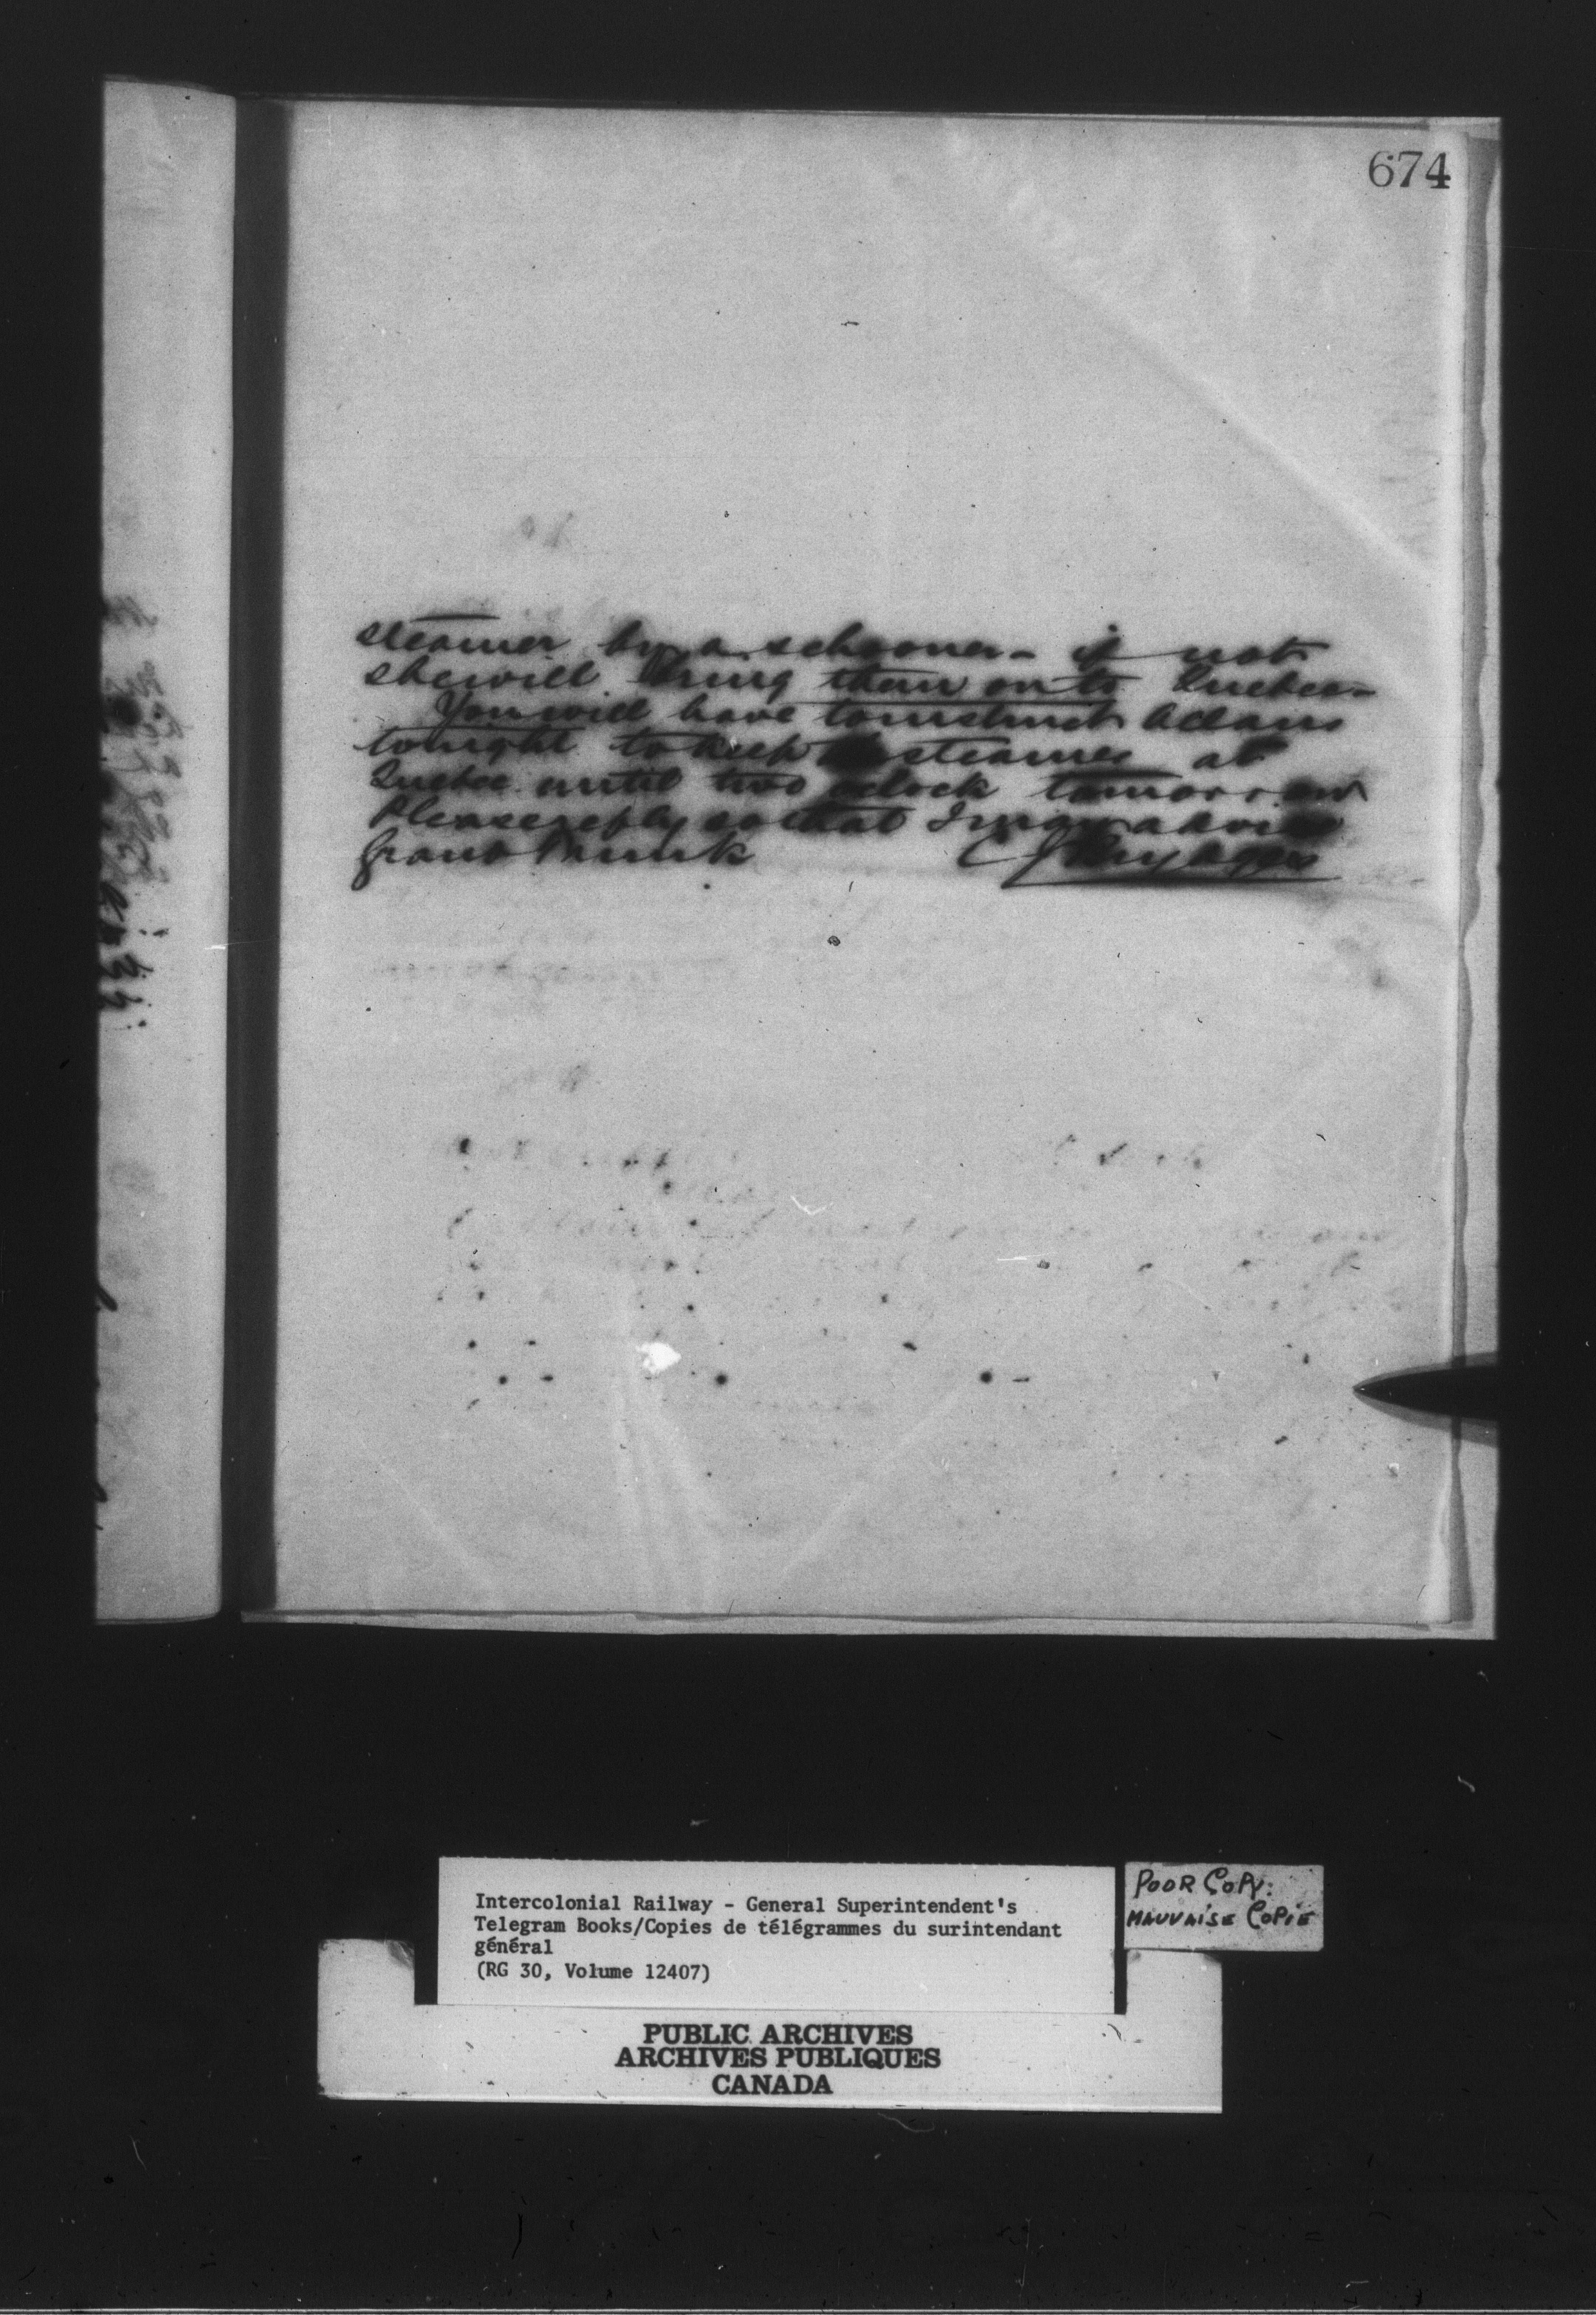 674
steamer by a schooner - if not
she will bring them on to Quebec -
You will have to instruct Allans
tonight to keep steamer at
Quebec until two oclock tomorrow
Please reply so that I may advise
Grand Trunk C J Brydges
Intercolonial Railway - General Superintendent's
Telegram Books/Copies de télégrammes du surintendant
général
(RG 30, Volume 12407)
POOR COPY:
MAUVAISE COPIE
PUBLIC ARCHIVES
ARCHIVES PUBLIQUES
CANADA